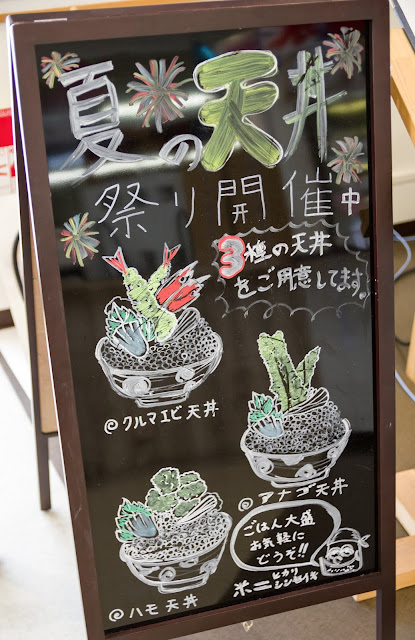 夏の天丼
祭り開催中
3種の天丼
をご用意してます。
@クルマエビ天丼
@アナゴ天丼
@ハモ天丼
ごはん大盛
お気軽に
どうぞ!!
ヒカリ